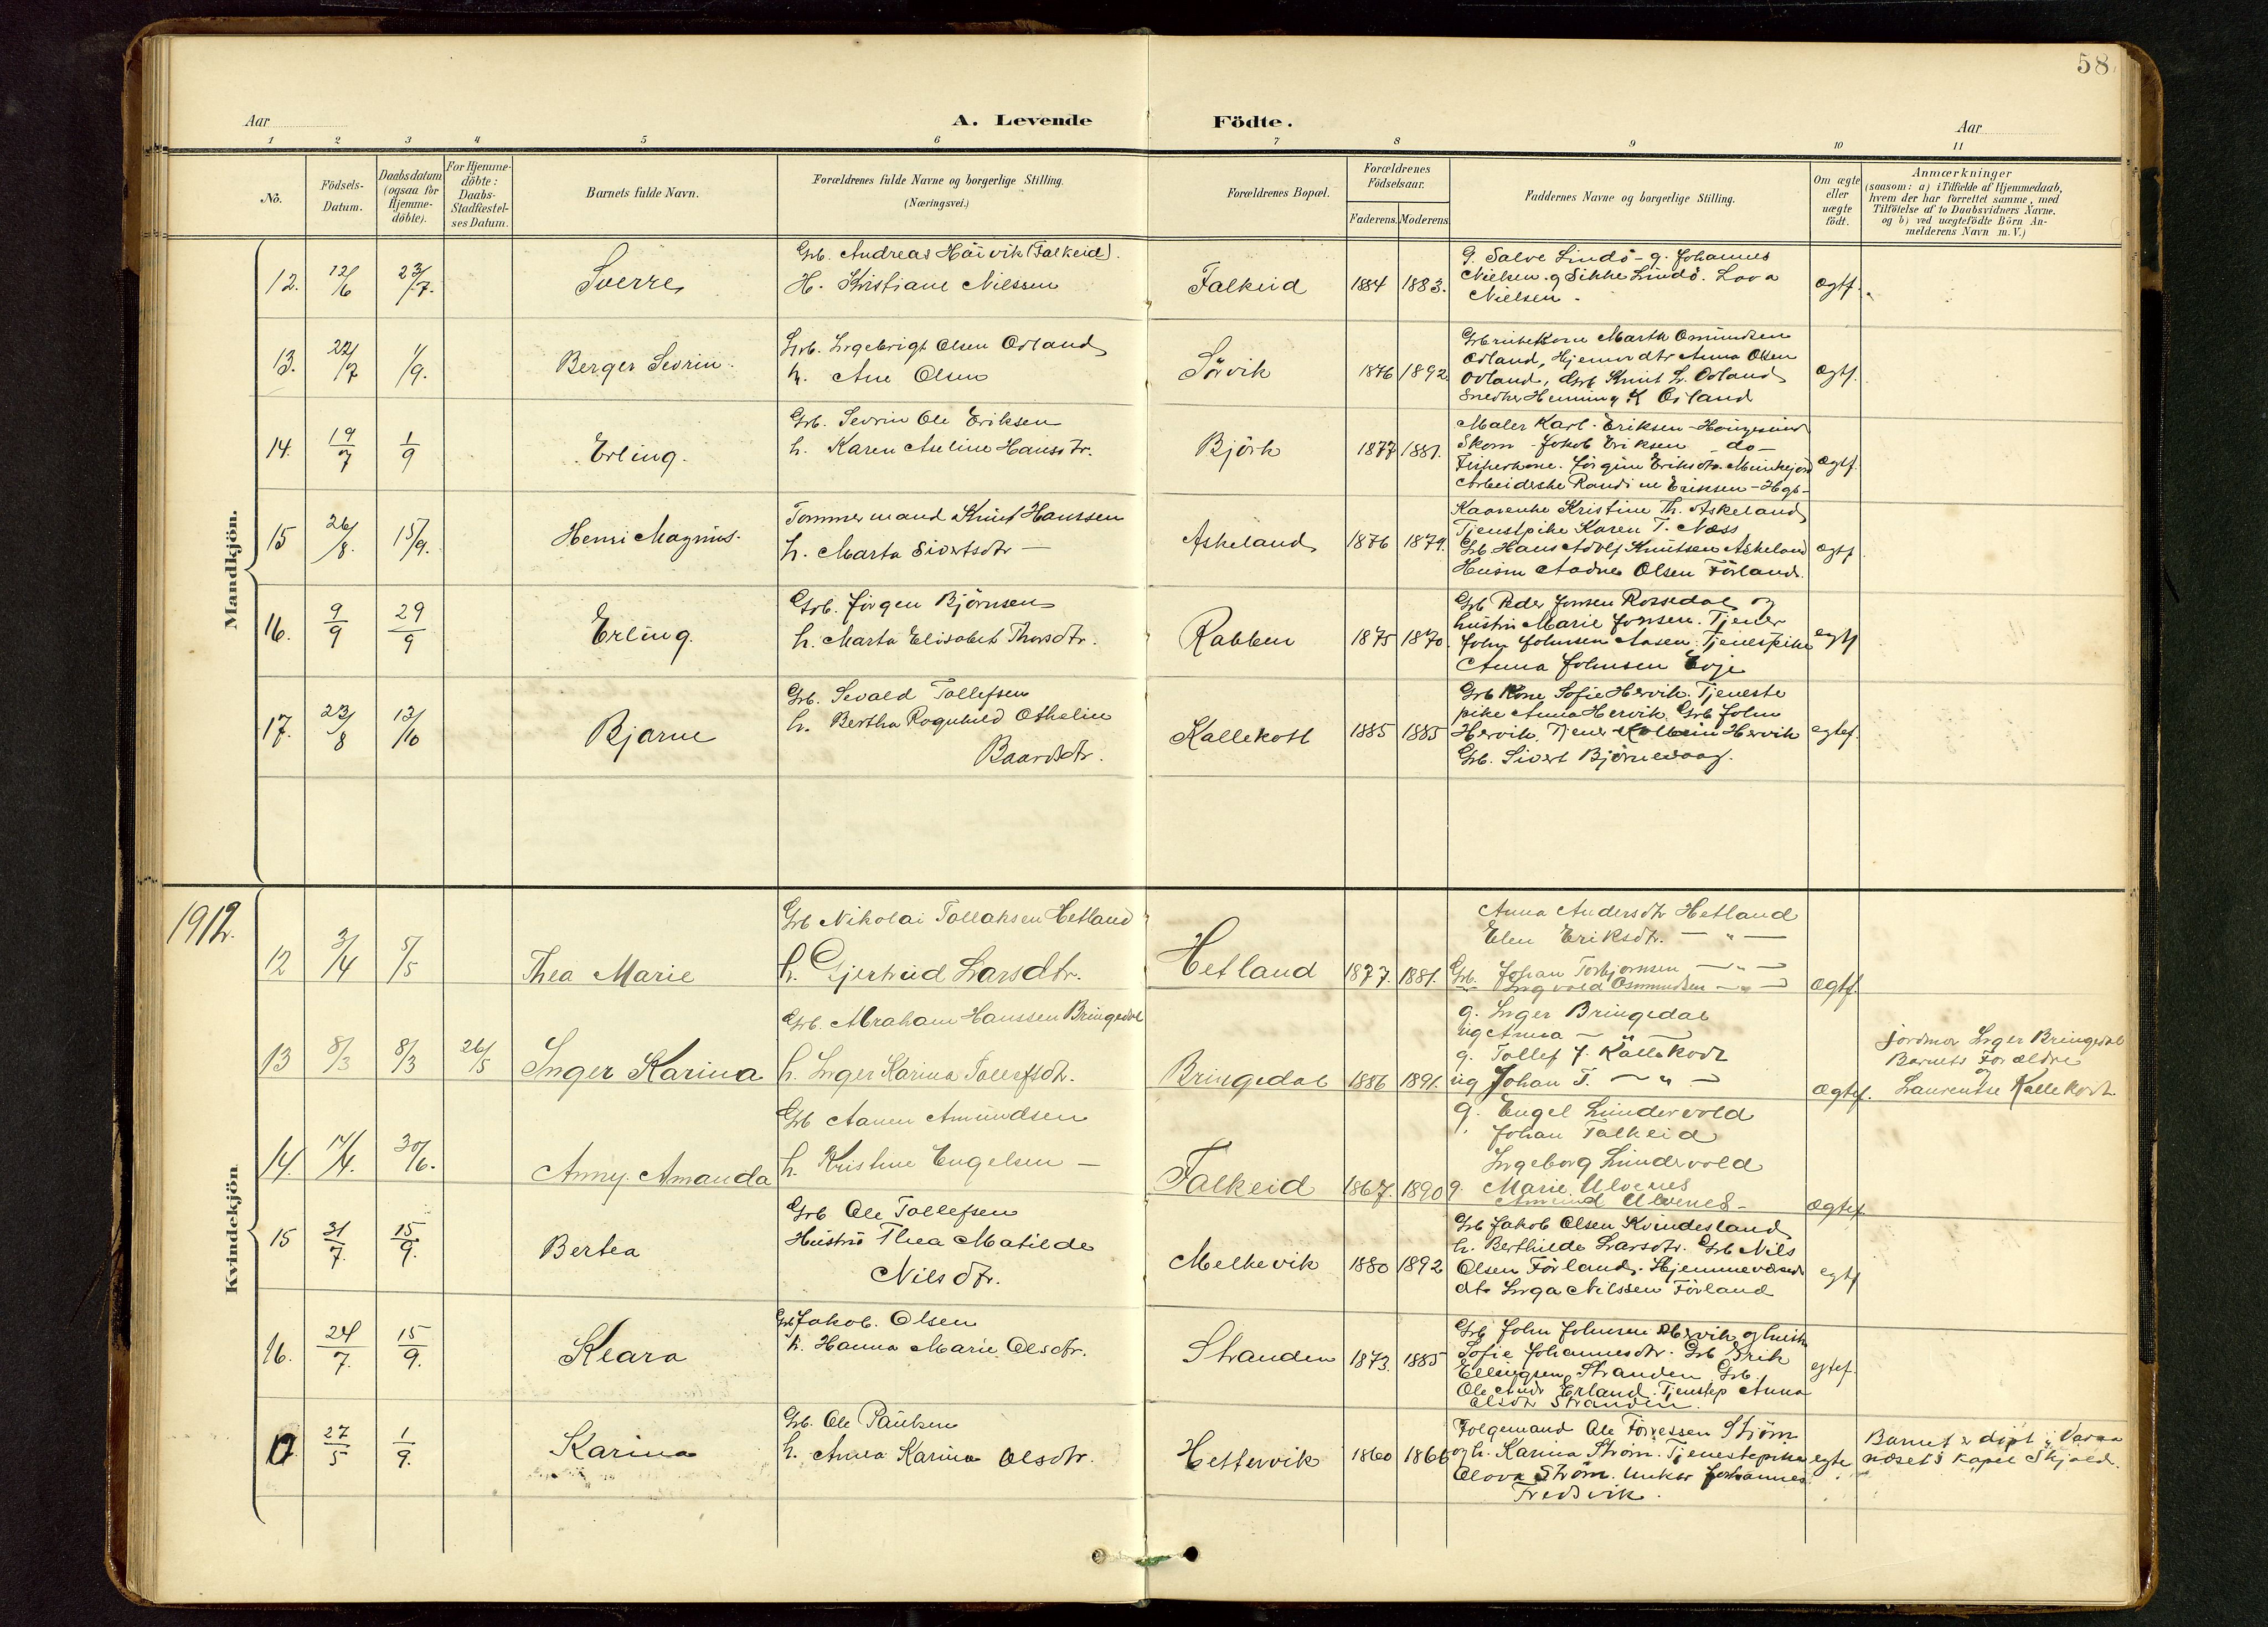 58.
Aar
A. Levende Födte.
Aar
1 2 3 4 5 6 7 8 9 10 11
No.
Födsels-
Datum.
Daabsdatum
(ogsaa for
Hjemme-
döbte).
For Hjemme-
döbte:
Daabs-
Stadfæstel-
ses Datum.
Barnets fulde Navn.
Forældrenes fulde Navne og borgerlige Stilling.
(Næringsvei.)
Forældrenes Bopæl.
Forældrenes
Födselsaar.
Faderens. Moderens.
Faddernes Navne og borgerlige Stilling.
Om ægte
eller
uægte
födt.
Anmærkninger
(saasom: a) i Tilfælde af Hjemmedaab,
hvem der har forrettet samme, med
Tilföielse af to Daabsvidners Navne.
og b) ved uægtefödte Börn An-
melderens Navn m. V.)
Mandkjön.
12. 12/6 23/7. Sverre
Grb. Andreas Häivik (Falkeid).
H. Kristiane Nilssen
Falkeid 1884 1883.
G. Salve Lindö - g. Johannes
Nielsen. g Sikke Lindö. Lova
Nielsen.
ægtf.
13. 22/7 1/9. Berger Sevrin.
Grb. Ingebrigt Olsen Odland
h. Ane Olsen
Sörvik 1876 1892
Grbruskone Marta Omundsen
Odland, Hjemvdtr Anna Olsen
Odland, Grb Knut L. Odland
Snedker Henning K Odland
ægtf.
14. 19/7 1/9 Erling.
Grb. Sevrin Ole Eriksen
h. Karen Aseline Hansdtr.
Björk 1877 1881.
Maler Karl Eriksen - Haugesund
Skom - Jakob Eriksen - do -
Fiskerkone. Jörgine Eriksdtr.
Arbeiderske Eriksen - Hgs -
ægtf.
15 26/8. 15/9. Henri Magnus.
Tømmermand Knut Hanssen
h. Marta Sivertsdtr -
Askeland 1876 1879.
Kristine Th. Askeland
Tjenstpike Karen T. Næss
Grb Hans Adolf Knutsen Askeland
Husm Aadne Olsen Förland.
ægtf
16. 9/9 29/9 Erling.
Grb. Jörgen Björnsen
h. Marta Elisabet Thorsdtr.
Rabben 1875 1870.
Grb Peder Jonsen Rossedal og
hustru Marie Jonsen. Tjener
John Johnsen Aasen. Tjenespike
Anna Johnsen Evje
egtf
17. 23/8 13/10 Bjarne
Grb. Sevald Tollefsen
h. Bertha Rognhild Othelie
Baardsdtr.
Kallekott 1885 1885
Grb Kone Sofie Hervik. Tjeneste
pike Anna Hervik. Grb John
Hervik. Tjener Kolbein Hervik
Grb. Sivert Björnevaag.
egtef.
Kvindekjön
1912.
12 3/4 5/5 Thea Marie
Grb Nikolai Tollaksen Hetland
h. Gjertrud Larsdtr.
Hetland 1877. 1881.
Anna Andersdtr Hetland
Elen Eriksdtr. - " -
Grb. Johan Torbjornsen - " -
Ingvald Osmundsen - " -
ægtf.
13 8/3 8/3 26/5 Inger Karina
Grb. Abraham Hanssen Bringedal
h. Inger Karina Tollefsdtr.
Bringedal 1886 1891.
g. Inger Bringedal
ug Anna - " -
g. Tollef J. Kallekodt
ug Johan T. - " -
ægtef.
jordmor Inger Bringedal
Barnets Forældre
og
Laurentse Kallekodt.
14. 14/4. 30/6. Anny Amanda
Grb Aanen Amundsen
h. Kristine Engelsen -
Falkeid 1867. 1890
g. Engel Lundevold
Johan Falkeid
Ingeborg Lundevold
g. Marie Ulvenes
Amund Ulvenes -
ægtef
15 31/7. 15/9. Bertea
Grb Ole Tollefsen
Hustru Thea Matilde
Nilsdtr.
Melkevik 1880 1892
Grb Jakob Olsen Kvindesland
h. Berthilde Larsdtr. Grb Nils
Olsen Förland. Hjemmeværd
dtr Inga Nilssen Förland
egtf
16. 24/7. 15/9. Klara
Grb Jakob. Olsen
h. Hanna Marie Olsdtr.
Stranden 1873. 1885
Grb John Johnsen Hervik og hustr
Sofie Johannesdtr. Grb Erik
Ellingsen Stranden Grb
Ole Andr Erland. Tjenstep Anna
Olsdtr Stranden.
egtef.
17. 27/5 1/9. Karina
Grb. Ole Paulsen
h. Anna Karina Olsdtr.
Hettervik 1860 1866
Folgemand Ole Strøm
og h. Karina Strøm. Tjenestepike
Olava Strøm. Unkar Johannes
Fredsvik.
egte
Barnet er døpt i
næset's kapel Skjold.